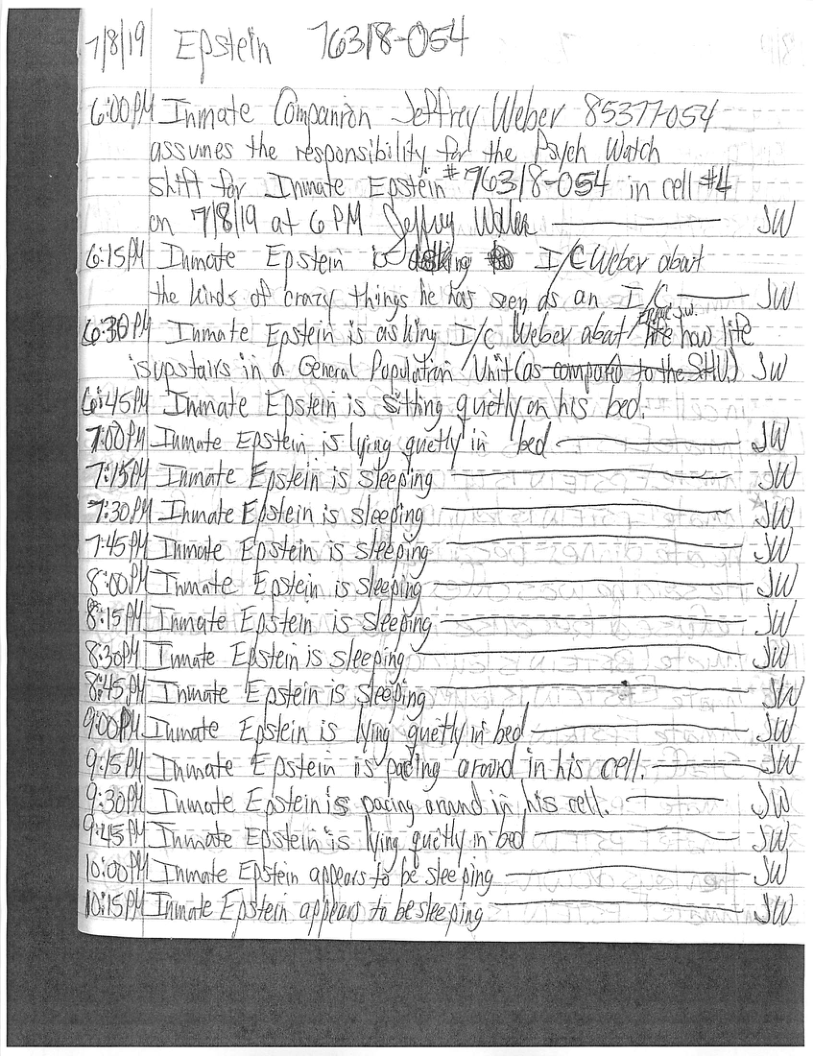 7/8/19 Epstein 76318-054
6:00PM Inmate Companion Jeffrey Weber 85377-054
assumes the responsibility for the Psych Watch
shift for Inmate Epstein #76318-054 in cell #4
on 7/8/19 at 6 PM Jeffrey Weber JW
6:15PM Inmate Epstein is asking I/C Weber about
the kinds of crazy things he has seen as an I/C JW
6:30PM Inmate Epstein is asking I/C Weber about how life
is upstairs in a General Population Unit (as compared to the SHU) JW
6:45PM Inmate Epstein is sitting quetly on his bed.
7:00PM Inmate Epstein is lying quetly in bed JW
7:15PM Inmate Epstein is sleeping JW
7:30PM Inmate Epstein is sleeping JW
7:45PM Inmate Epstein is sleeping JW
8:00PM Inmate Epstein is sleeping JW
8:15PM Inmate Epstein is sleeping JW
8:30PM Inmate Epstein is sleeping JW
8:45PM Inmate Epstein is sleeping JW
9:00PM Inmate Epstein is lying quetly in bed JW
9:15PM Inmate Epstein is pacing around in his cell. JW
9:30PM Inmate Epstein is pacing around in his cell. JW
9:45PM Inmate Epstein is lying quetly in bed JW
10:00PM Inmate Epstein appears to be sleeping JW
10:15PM Inmate Epstein appears to be sleeping JW